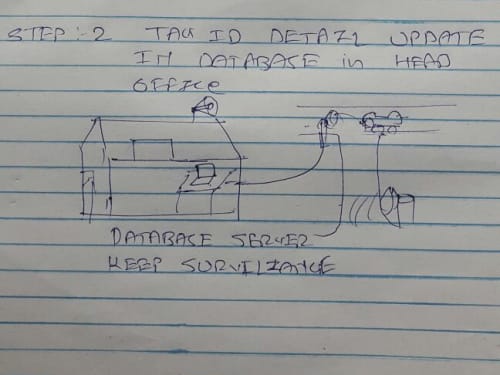 STEP:-2 TAG ID DETAIL UPDATE
IN DATABASE in HEAD
OFFICE
DATABASE SERVER
KEEP SURVILIANCE